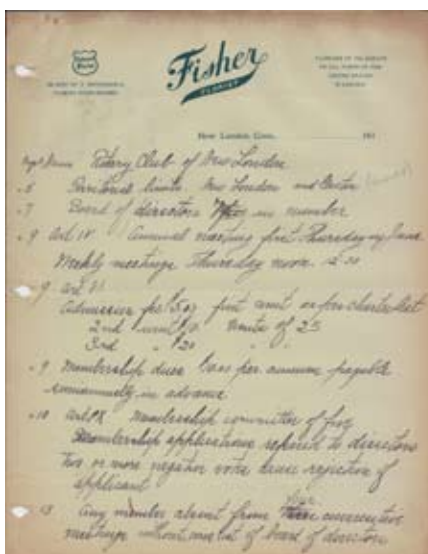 Fisher
FLORIST
FLOWERS BY TELEGRAPH
TO ALL PARTS OF THE
UNITED STATES
New London Conn. 191
Rotary Club of New London
. 6 Territorial limits New London and
. 7 Board of directors in number
. 9 Art IV Annual meeting first Thursday in June
Weekly meetings Thursday noon 12 30
9 Art VI
Admission fee $5.00 first unit or for charter list
2nd unit $10 Units of 25
3rd " $20 "
. 9 Membership dues per annum payable
semiannually in advance
. 10 Art IX Membership committee of five
Membership applications referred to directors
two or more negative votes cause rejection of
applicant
. 13 Any member absent from four consecutive
meetings without consent of board of directors